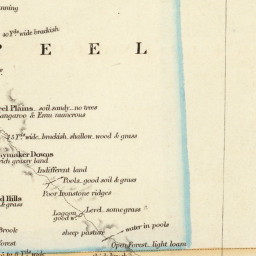 nning
40 Yds wide brackish
P E E L
eel Plains soil sandy no trees
Kangaroo & Emu numerous
25 Yds wide, brackish, shallow, wood & grass
aymaker Downs
rich grassy land
Indifferent land
Pools good soil & grass
Poor Ironstone ridges
d Hills
Lagoon
good w
Level some grass
Brooke
sheep pasture
water in pools
forest
Open Forest light loam
Yds wide